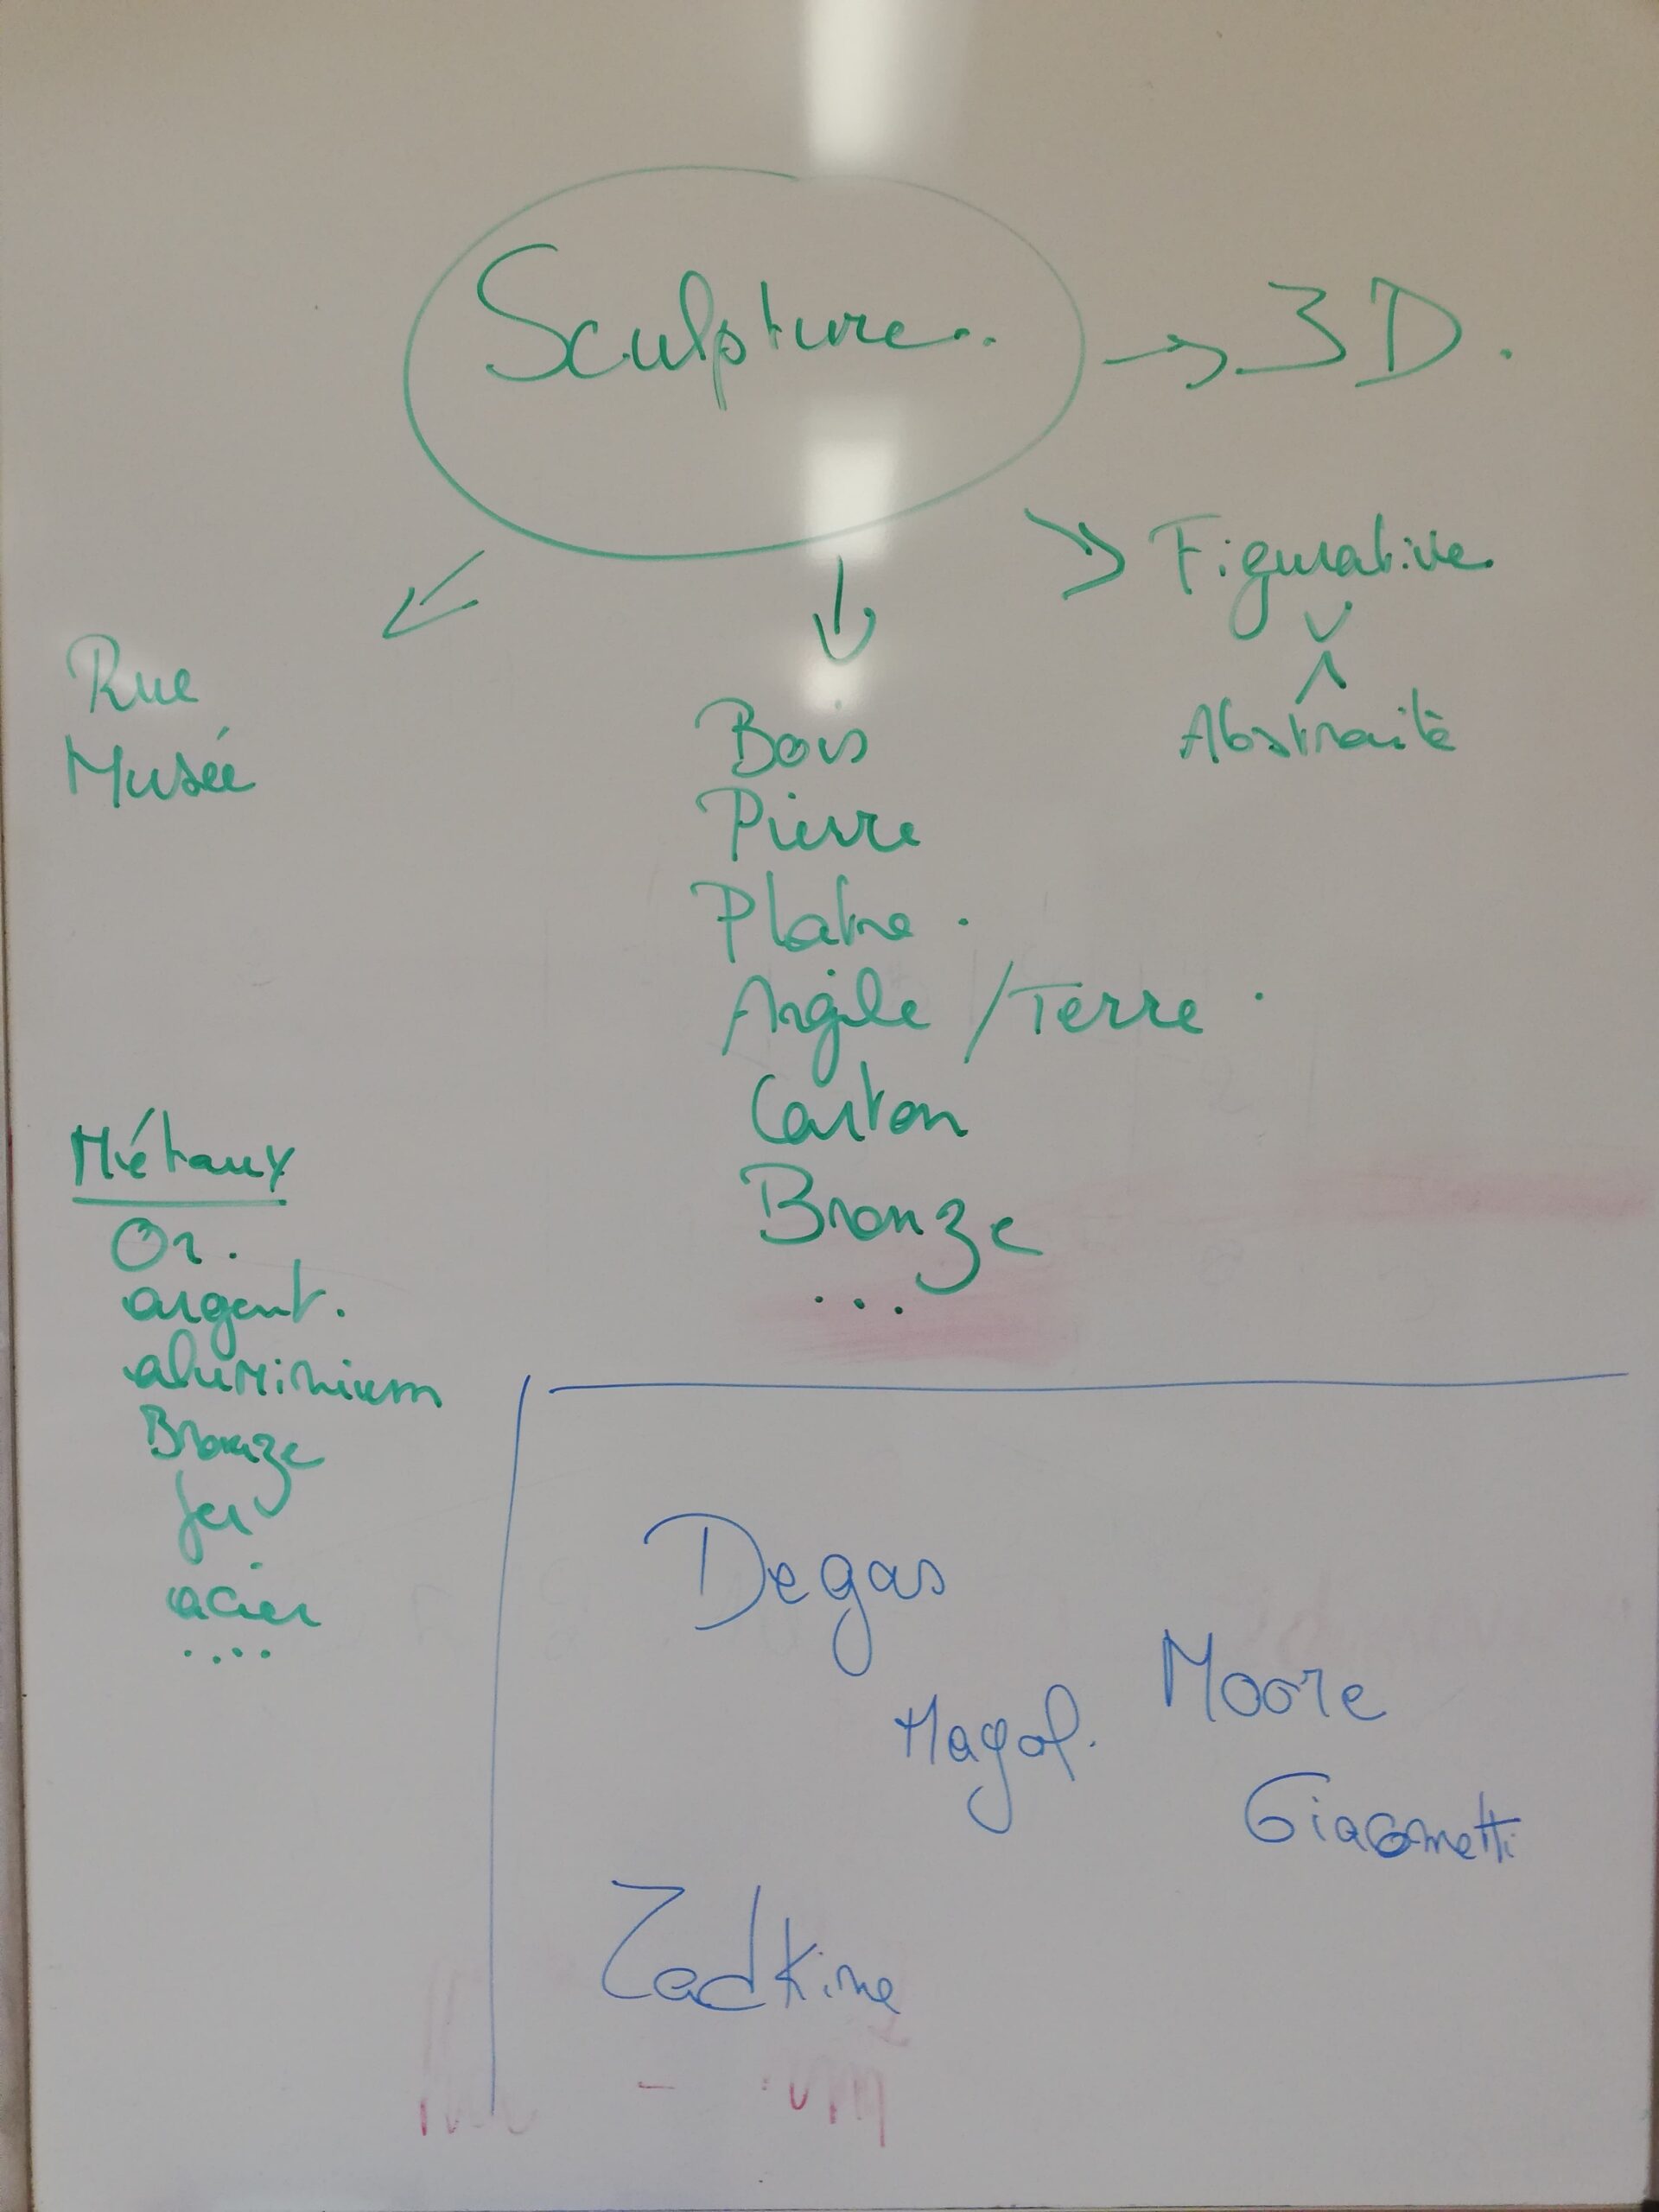 Sculpture..
→ 3D.
Figurative
Abstraite
Rue
Musée
Bois
Pierre
Platre.
Argile / Terre.
Carton
Bronze
...
Métaux
Or.
argent.
aluminium
Bronze
fer
acier
....
Degas
Moore
Giacometti
Zadkine